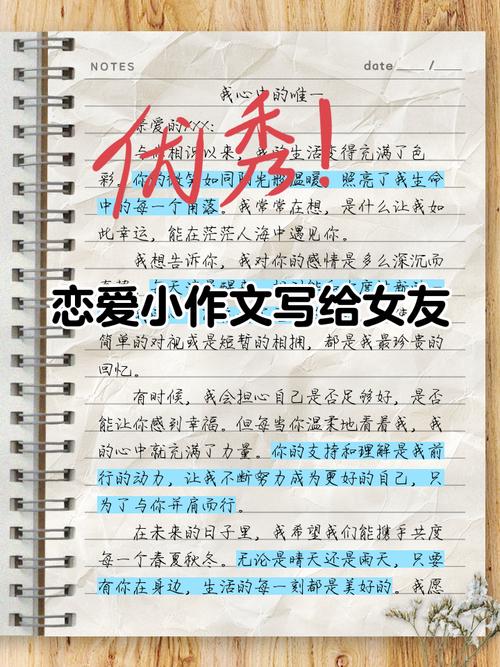 NOTES
date ___ / ___
我心中的唯一
亲爱的XXX:
相识以来,我的生活变得充满了色
彩。你的微笑如同阳光般温暖,照亮了我生命
中的每一个角落。我常常在想,是什么让我如
此幸运,能在茫茫人海中遇见你。
我想告诉你,我对你的感情是多么深沉而
优秀!
恋爱小作文写给女友
简单的对视或是短暂的相拥,都是我最珍贵的
回忆。
有时候,我会担心自己是否足够好,是否
能让你感到幸福。但每当你温柔地看着我,我
的心中就充满了力量。你的支持和理解是我前
行的动力,让我不断努力成为更好的自己,只
为了与你并肩而行。
在未来的日子里,我希望我们能携手共度
每一个春夏秋冬。无论是晴天还是雨天,只要
有你在身边,生活的每一刻都是美好的。我愿